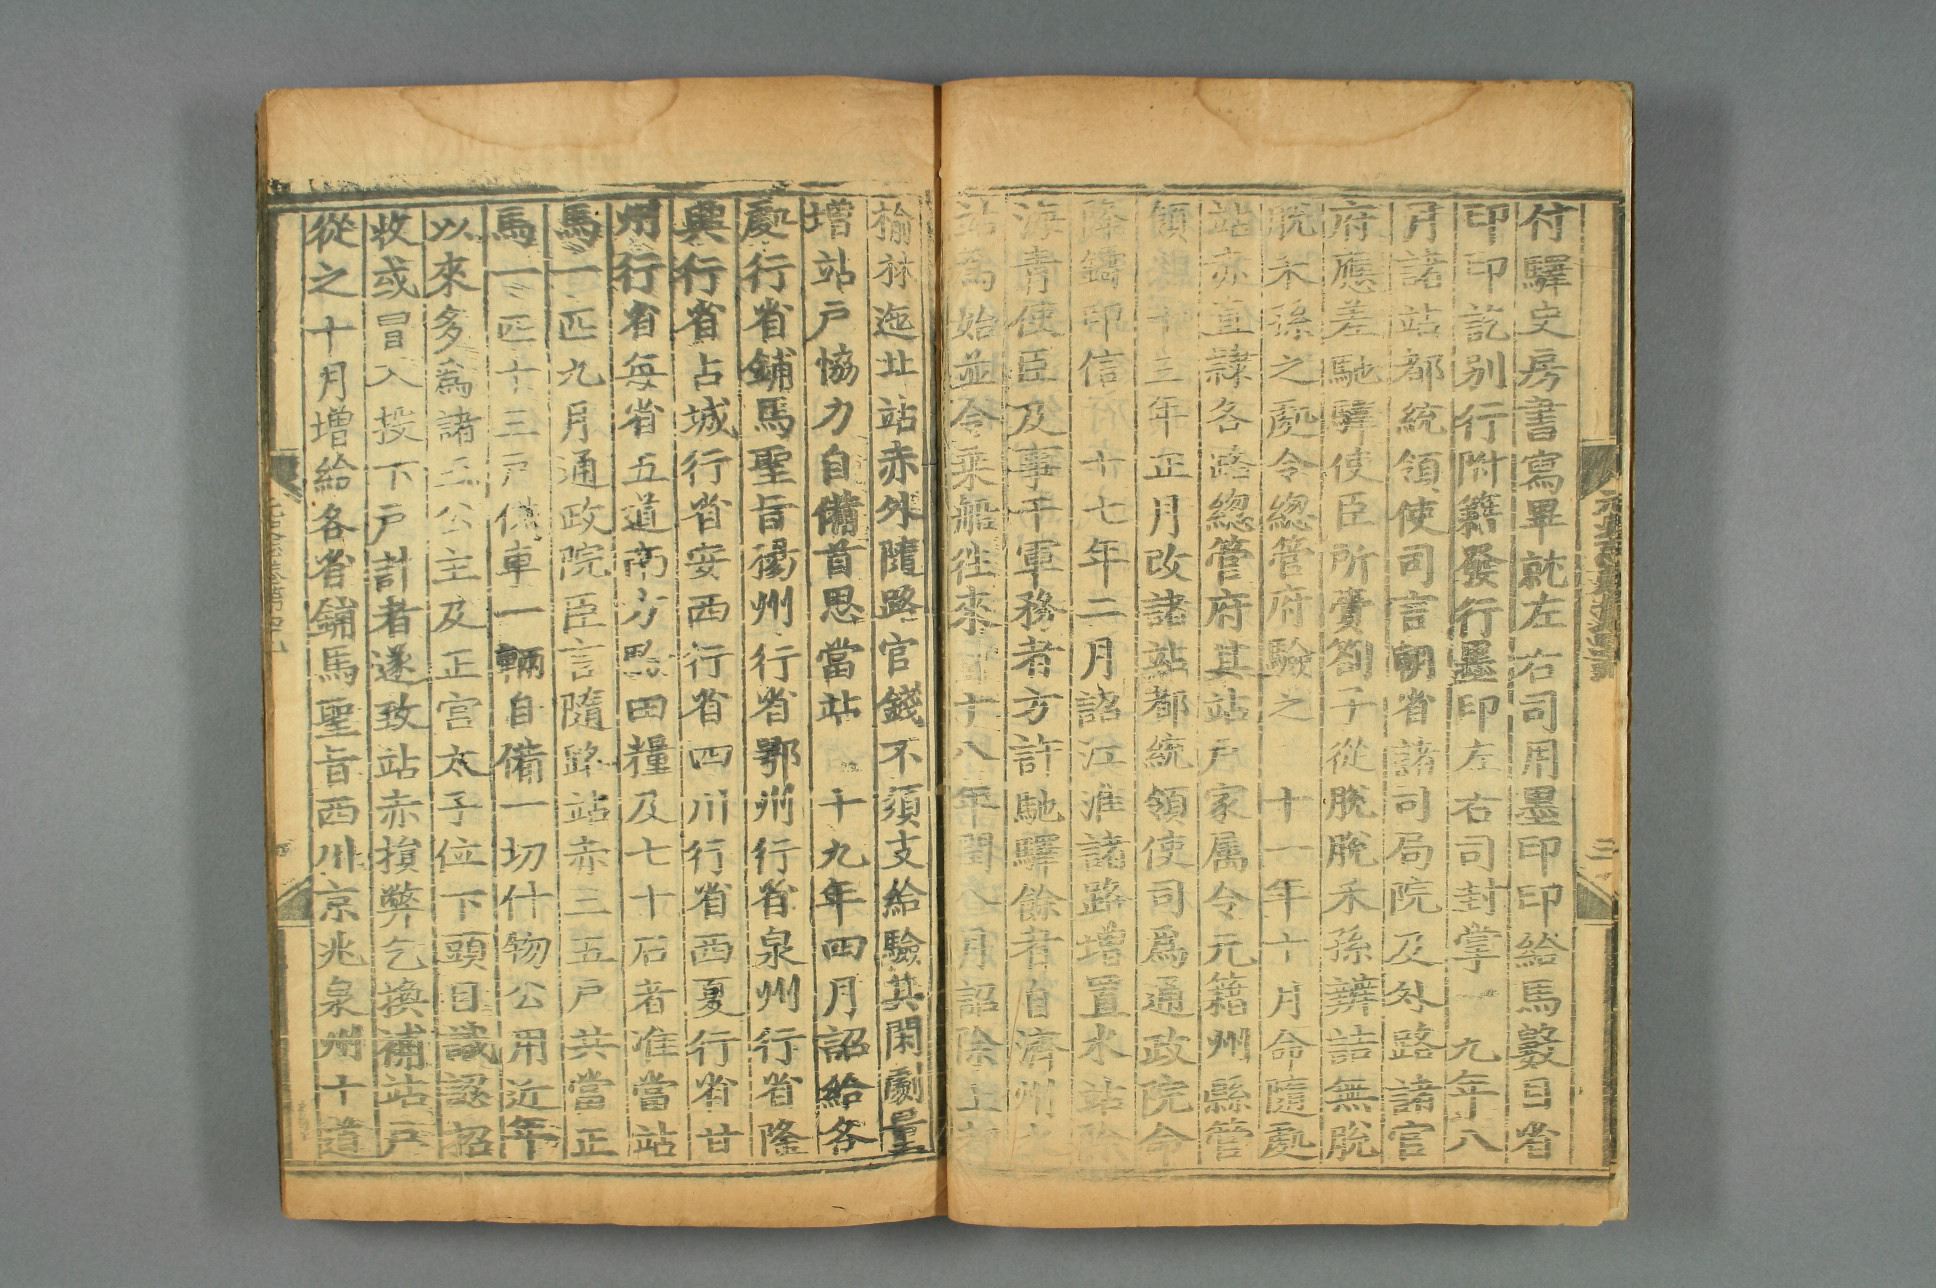 付驛史房書寫畢就左右司用墨印印給馬數目省
印印訖別行附籍發行墨印左右司封掌 九年八
月諸站都統領使司言朝省諸司局院及外路諸官
府應差馳驛使臣所賷劄子從脫脫禾孫辨詰無脫
脫禾孫之處令總管府驗之 十一年十月命隨處
站赤直隷各路總管府其站戶家属令元籍州縣管
領 十三年正月改諸站都統領使司爲通政院命
降鑄印信 十七年二月詔江淮諸路增置水站除
海青使臣及事干軍務者方許馳驛餘者自濟州水
站爲始並令乗船徃來 十八年閏八月詔除上都
榆林迤北站赤外隨路官錢不須支給驗其閑劇量
增站戶恊力自備首思當站 十九年四月詔給各
處行省鋪馬聖旨揚州行省鄂州行省泉州行省隆
興行省占城行省安西行省四川行省西夏行省甘
州行省每省五道南方驗田糧及七十石者准當站
馬一匹九月通政院臣言隨路站赤三五戶共當正
馬一匹十三戶供車一輛自備一切什物公用近年
以來多爲諸王公主及正宫太子位下頭目識認招
收或冒入投下戶計者遂致站赤損弊乞換補站戶
從之十月增給各省鋪馬聖旨西川京兆泉州十道